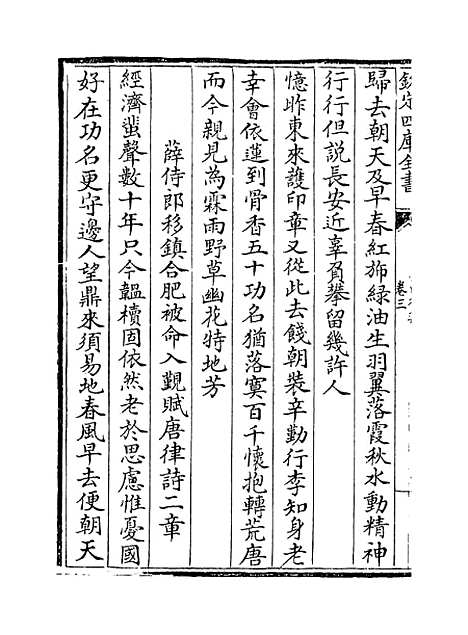 欽定四庫全書
卷三
歸去朝天及早春紅旆綠油生羽翼落霞秋水動精神
行行但說長安近辜負攀留幾許人
憶昨東來護印章又從此去餞朝裝辛勤行李知身老
幸會依蓮到骨香五十功名猶落寞百千懷抱轉荒唐
而今親見為霖雨野草幽花特地芳
薛侍郎移鎮合肥被命入覲賦唐律詩二章
經濟蜚聲數十年只今韞櫝固依然老於思慮惟憂國
好在功名更守邊人望鼎來須易地春風早去便朝天